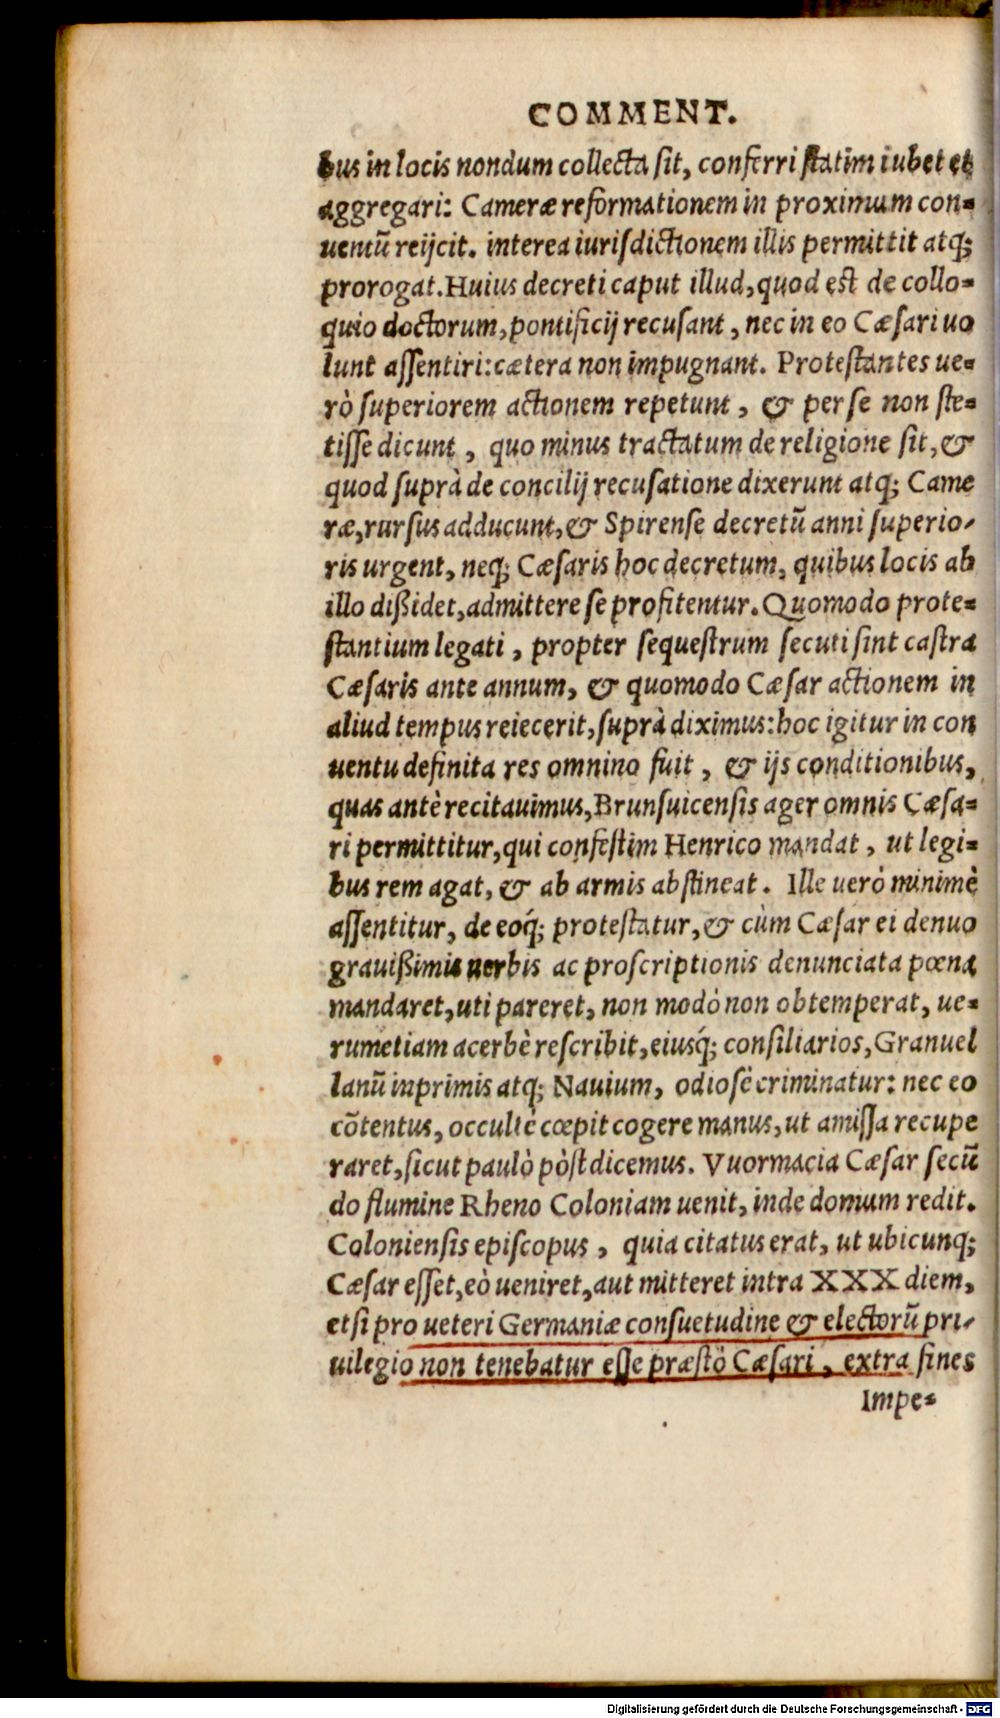 COMMENT.
bus in locis nondum collecta sit, conferri statim iubet et
aggregari: Cameræ reformationem in proximum con-
uentũ reijcit. interea iurisdictionem illis permittit atq;
prorogat. Huius decreti caput illud, quod est de collo-
quio doctorum, pontificij recusant, nec in eo Cæsari uo
lunt assentiri: cætera non impugnant. Protestantes ue-
rò superiorem actionem repetunt, & per se non ste-
tisse dicunt, quo minus tractatum de religione sit, &
quod suprà de concilij recusatione dixerunt atq; Came
ræ, rursus adducunt, & Spirense decretũ anni superio-
ris urgent, neq; Cæsaris hoc decretum, quibus locis ab
illo dißidet, admittere se profitentur. Quomodo prote-
stantium legati, propter sequestrum secuti sint castra
Cæsaris ante annum, & quomodo Cæsar actionem in
aliud tempus reiecerit, suprà diximus: hoc igitur in con
uentu definita res omnino fuit, & ijs conditionibus,
quas antè recitauimus, Brunsuicensis ager omnis Cæsa-
ri permittitur, qui confestim Henrico mandat, ut legi-
bus rem agat, & ab armis abstineat. Ille uerò minimè
assentitur, de eoq́; protestatur, & cùm Cæsar ei denuo
grauißimis uerbis ac proscriptionis denunciata pœna
mandaret, uti pareret, non modò non obtemperat, ue-
rumetiam acerbè rescribit, eiusq́; consiliarios, Granuel
lanũ inprimis atq; Nauium, odiosè criminatur: nec eo
cõtentus, occultè cœpit cogere manus, ut amissa recupe
raret, sicut paulò pòst dicemus. Vuormacia Cæsar secũ
do flumine Rheno Coloniam uenit, inde domum redit.
Coloniensis episcopus, quia citatus erat, ut ubicunq;
Cæsar esset, eò ueniret, aut mitteret intra XXX diem,
etsi pro ueteri Germaniæ consuetudine & electorũ pri-
uilegio non tenebatur esse præstò Cæsari, extra fines
Impe-
Digitalisierung gefördert durch die Deutsche Forschungsgemeinschaft - DFG